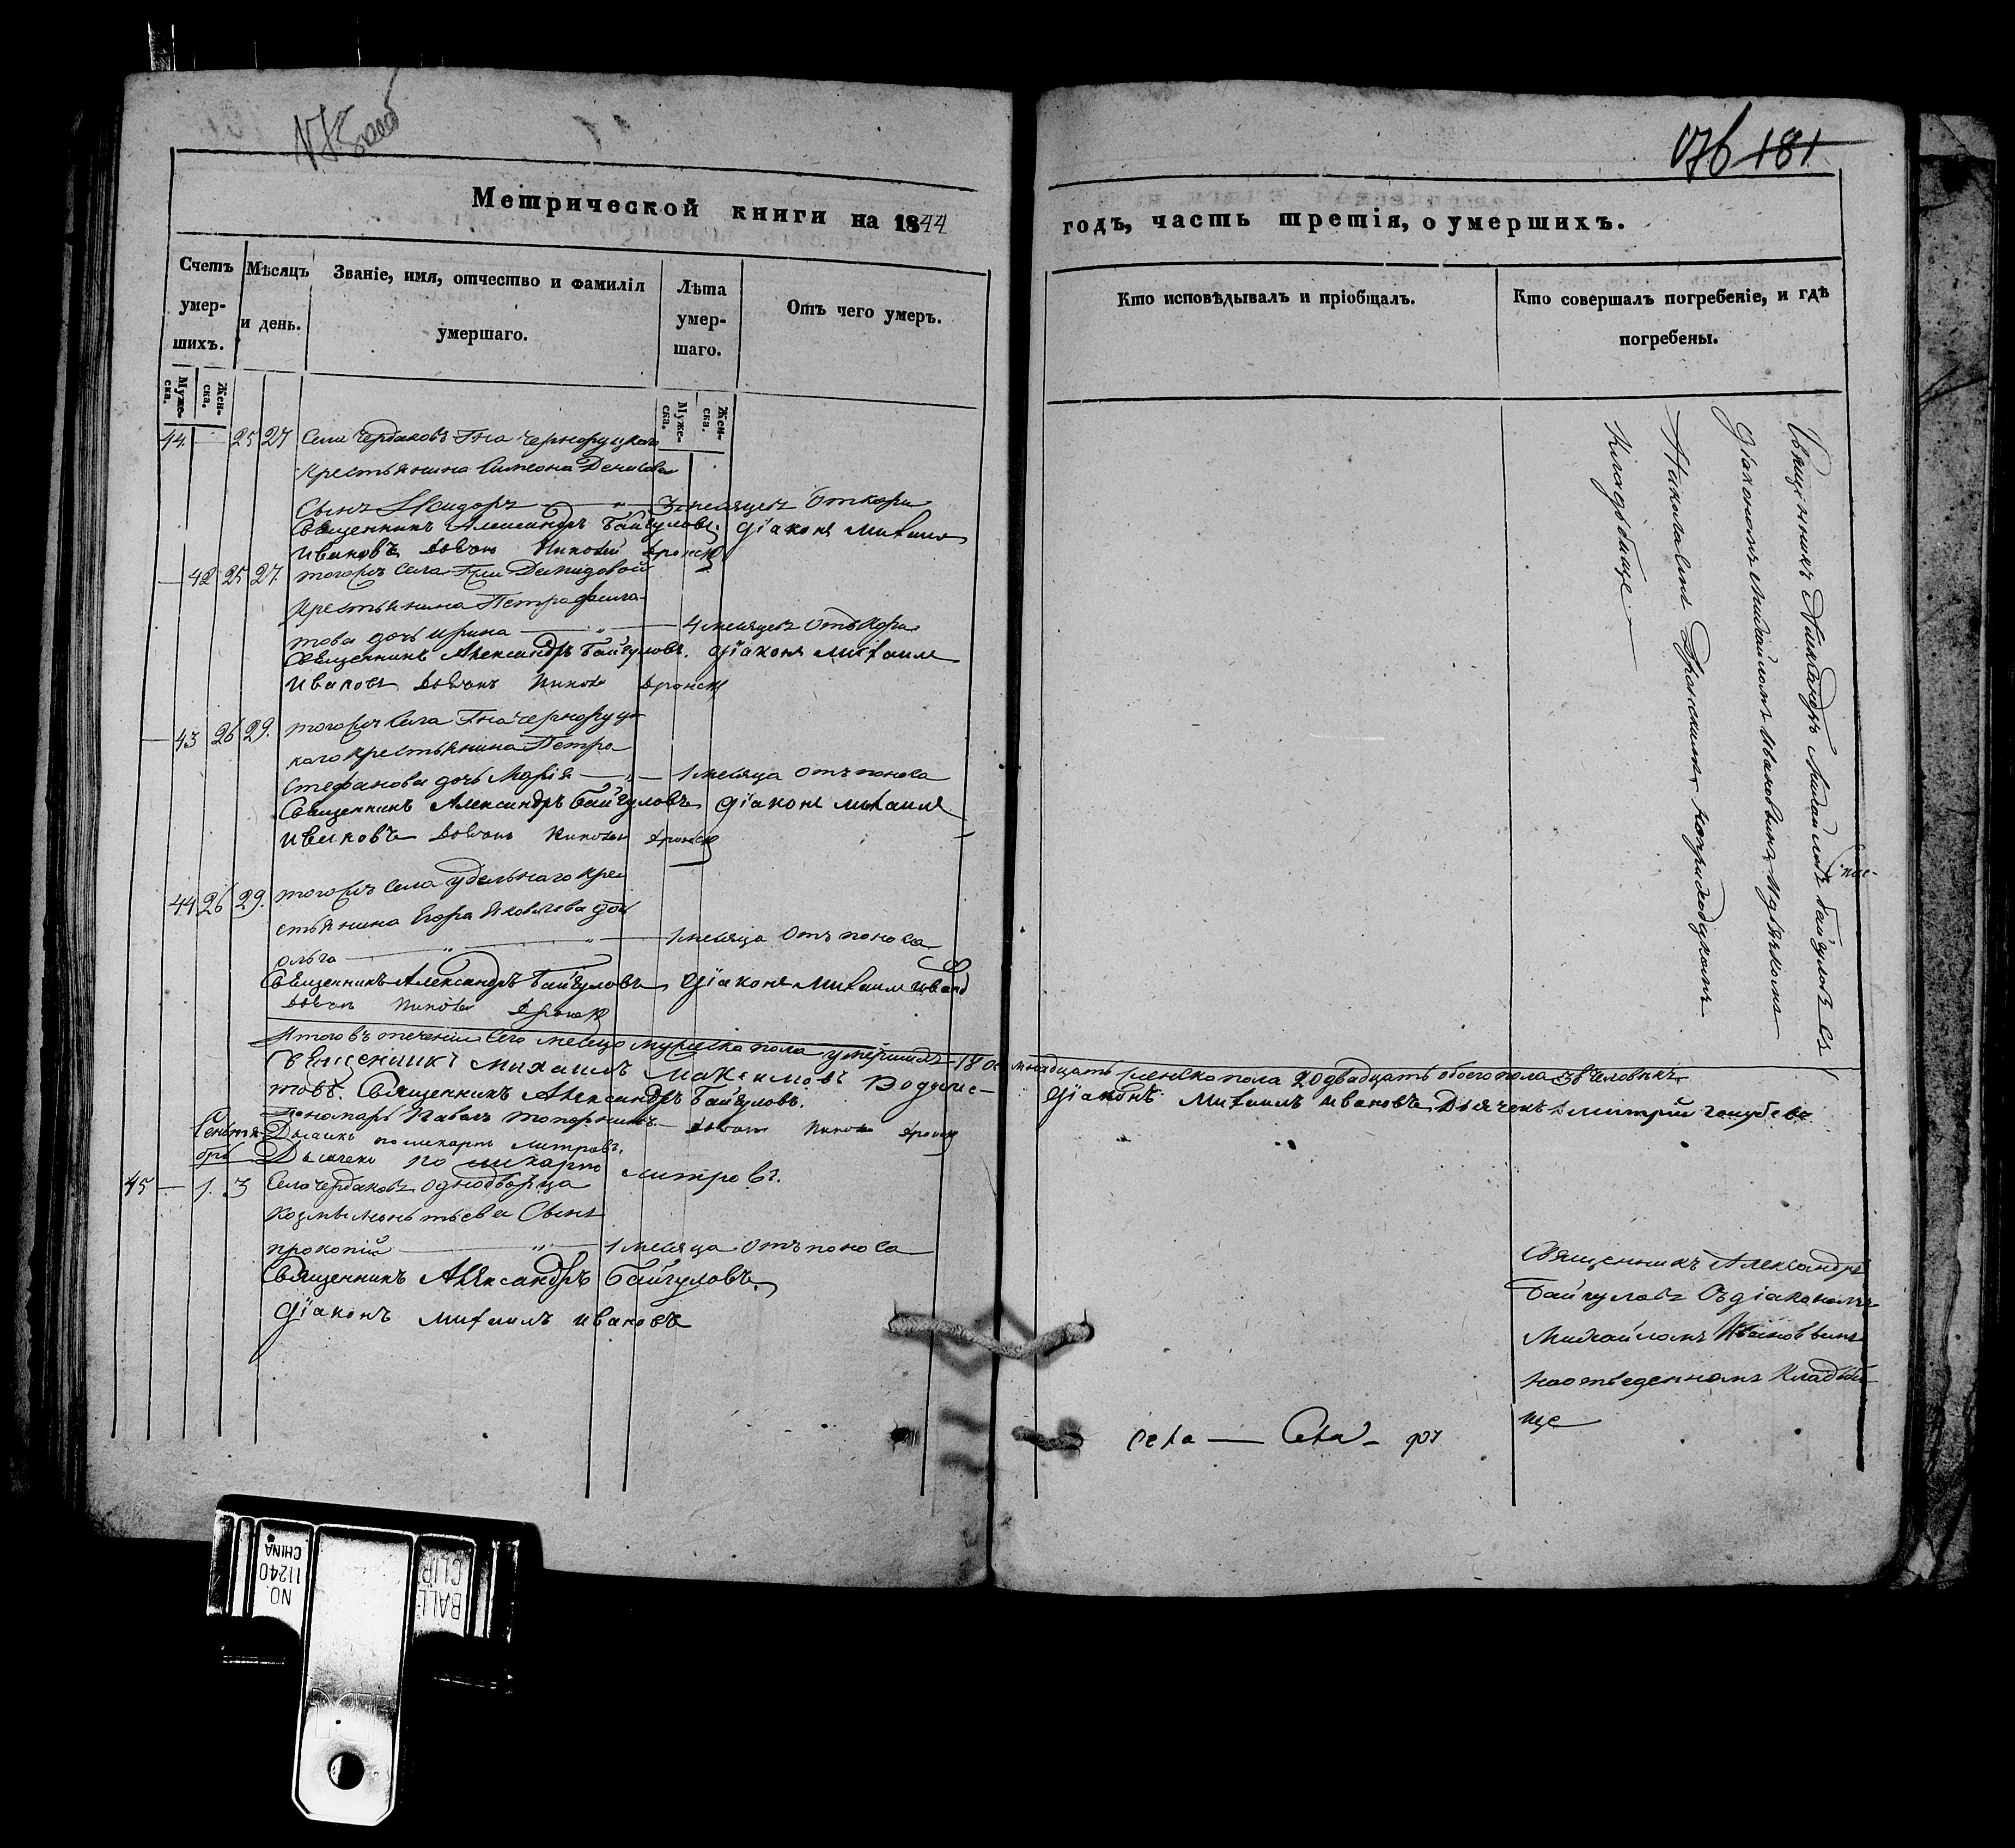 176 181
Метрической книги на 1844
годъ, часть третія, о умершихъ.
Счетъ умер-
шихъ.
Муже-
ска.
Жен-
ска.
Мѣсяцъ
и день.
Званіе, имя, отчество и фамилія
умершаго.
Лѣта
умер-
шаго.
Муже-
ска.
Жен-
ска.
Отъ чего умеръ.
Кто исповѣдывалъ и пріобщалъ.
Кто совершалъ погребеніе, и гдѣ
погребены.
44 — 25 27 Села Чердаковъ Гна Черноруцкаго
крестьянина Симеона Денисова
сынъ Исидоръ — 3 месяцевъ Отъ кори
Священникъ Александръ Байгуловъ. Діаконъ Михаилъ
Ивановъ Николай
— 42 25 27. тогожъ села Гжи Демидовой
крестьянина Петра Филата-
това дочь Ирина — 4 месяцевъ Отъ кори
Священникъ Александръ Байгуловъ. Діаконъ Михаилъ
Ивановъ
— 43 26 29. тогожъ села Гна Черноруц-
каго крестьянина Петра
Стефанова дочь Марія — 1 месяца Отъ поноса
Священникъ Александръ Байгуловъ Діаконъ Михаилъ
Ивановъ
44 26 29. тогожъ села удельнаго кре-
стьянина Егора Яковлева дочь
Ольга — 1 месяца Отъ поноса
Священникъ Александръ Байгуловъ Діаконъ Михаилъ Иванов
Итого въ теченіи сего месяца мужеска пола умершихъ 18 осмьнадцать женска пола 20 двадцать обоего пола 38 человѣкъ
Священникъ Михаилъ Максимовъ
Священникъ Александръ Байгуловъ. Діаконъ Михаилъ Ивановъ Дьячекъ Дмитрий Голубевъ
Пономарь Павелъ Топорнинъ
Дьячекъ Поликарпъ Митровъ.
Дьячекъ Поликарпъ Митровъ.
Сентя-
брь
45 — 1. 3 Села Чердаковъ однодворца
Козмы сынъ
Прокопій — 1 месяца Отъ поноса
Священникъ Александръ Байгуловъ
Діаконъ Михаилъ Ивановъ
Священникъ Александръ Михайловъ Байгуловъ съ
Діакономъ Михайломъ Ивановымъ
Николаемъ на приходскомъ
кладбище —
Священникъ Александръ
Байгуловъ съ діакономъ
Михайломъ Ивановымъ
на отведенномъ кладби-
ще
NO.
11240
CHINA
BALL
CLIP